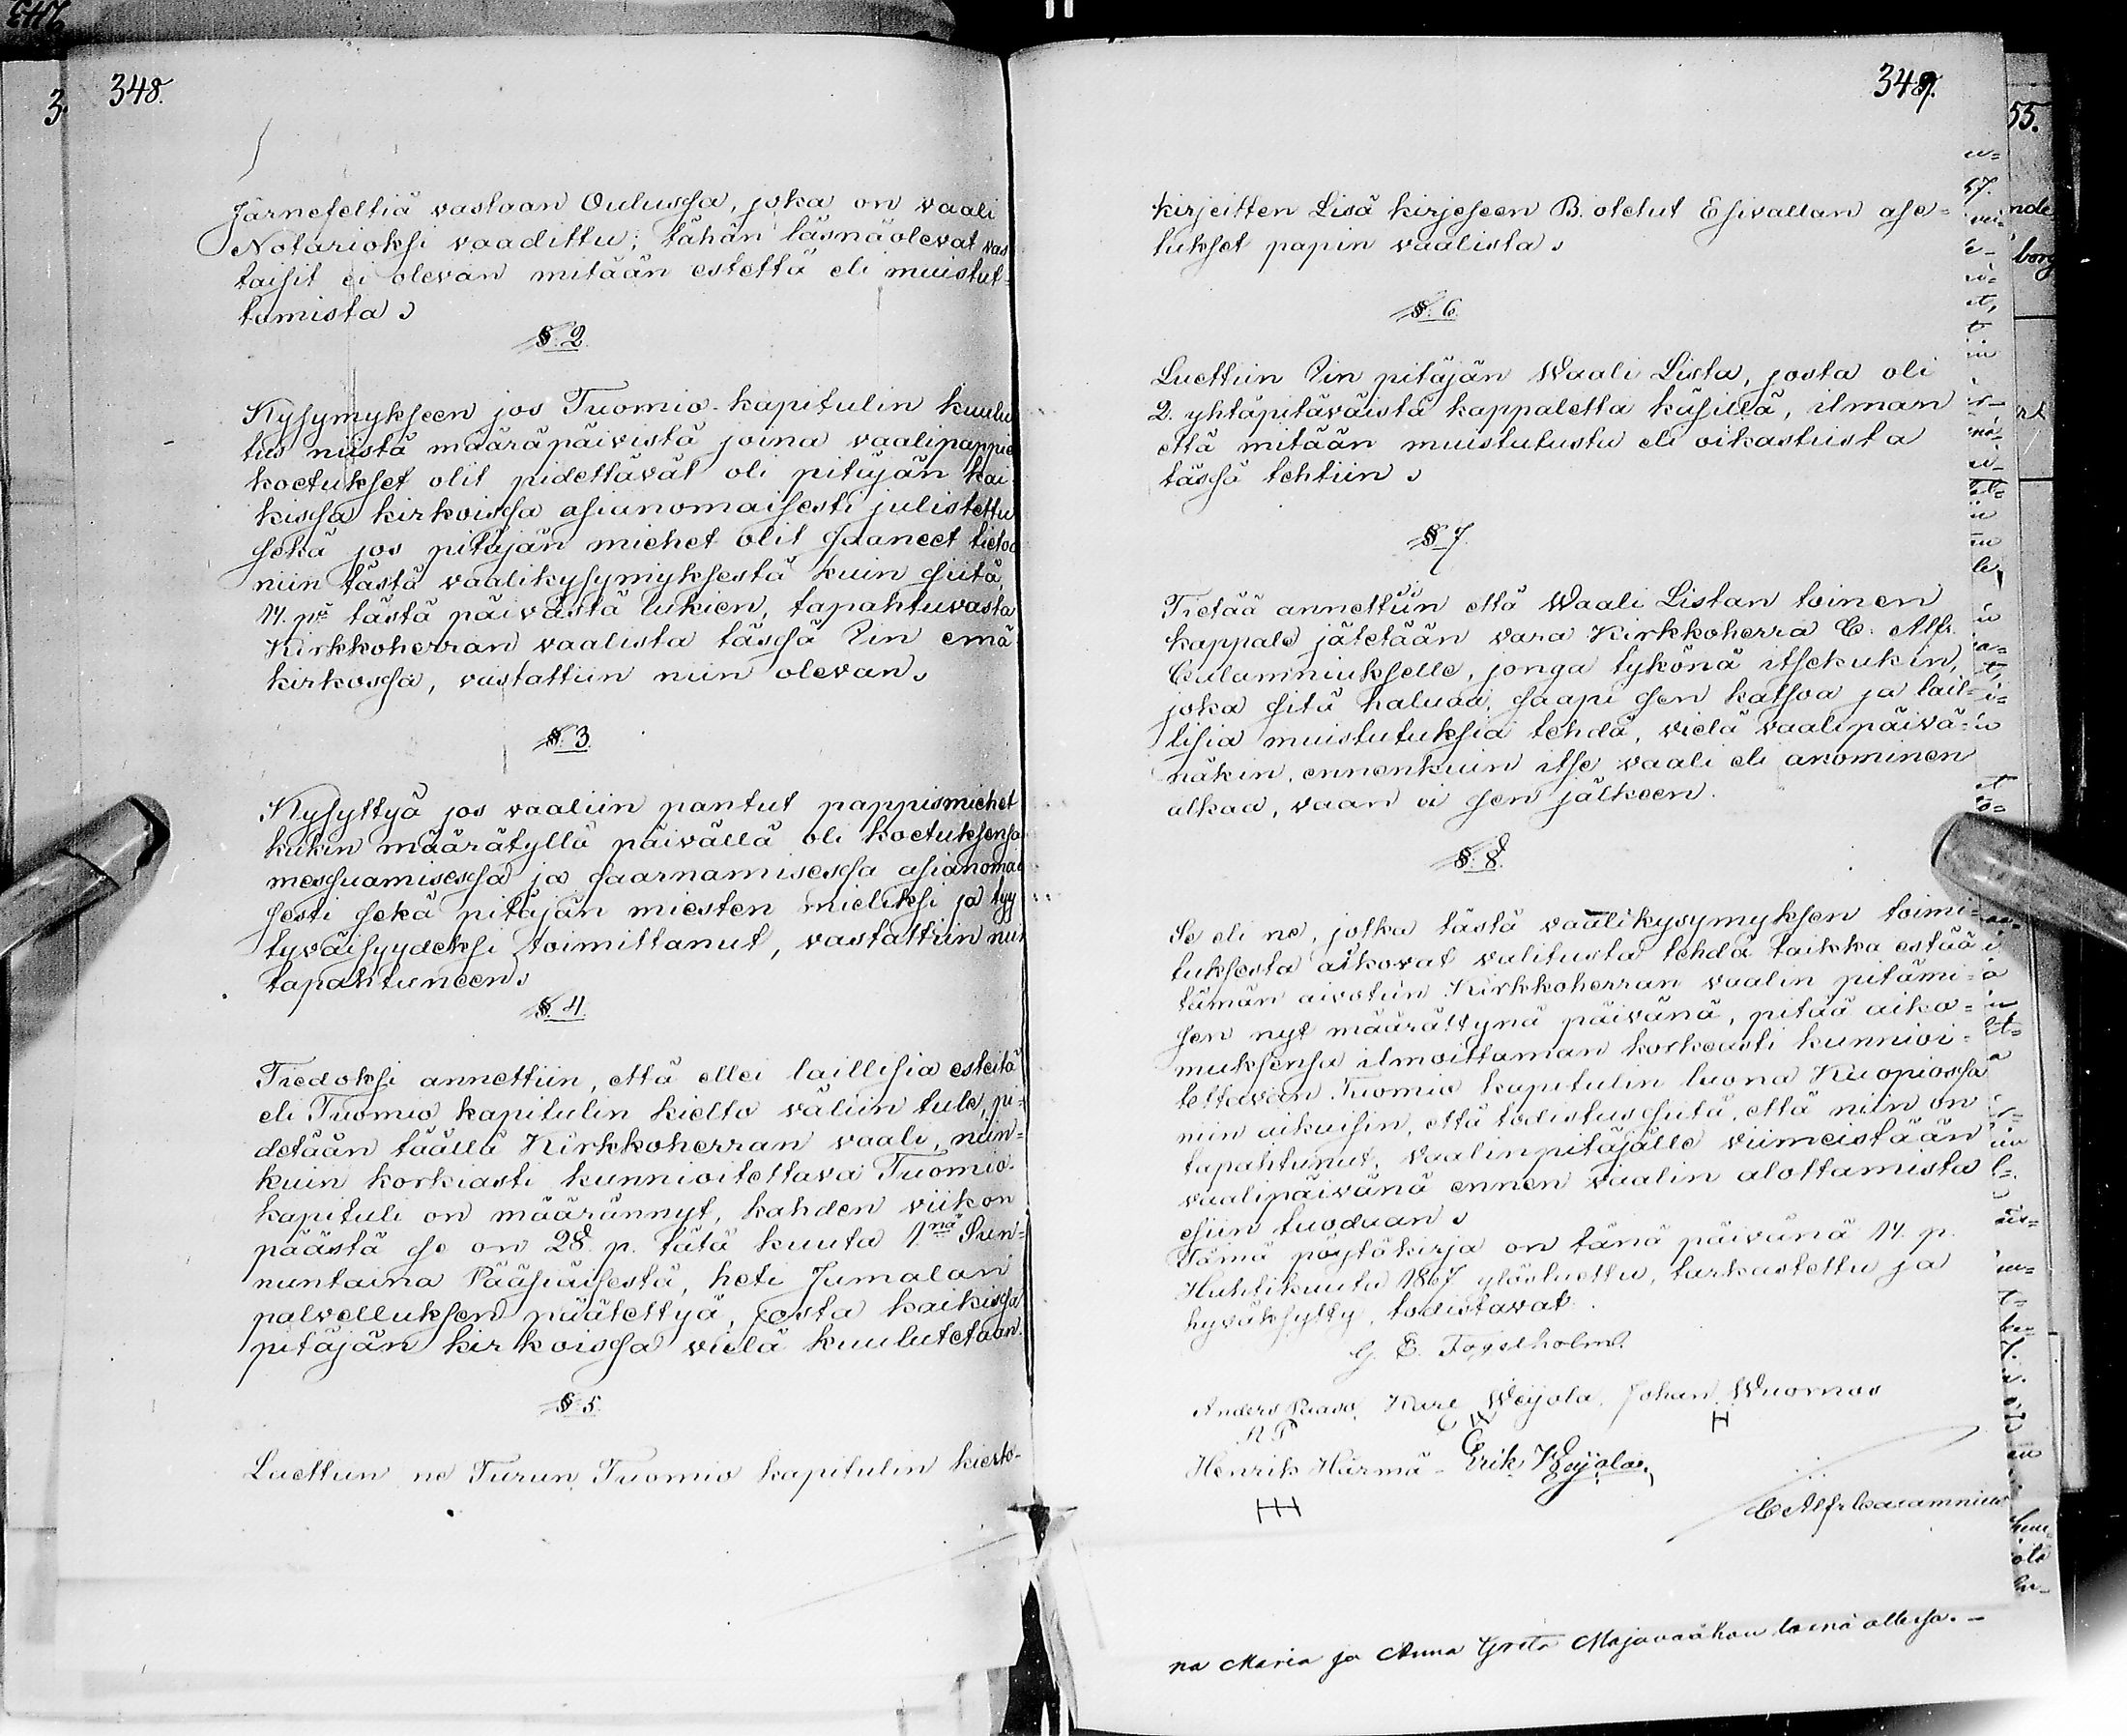 348.
Järnefeltiä vastaan Oulussa, joka on vaali
Notarioksi vaadittu; tähän läsnäolevat vas
taisit ei olevan mitään estettä eli muistut=
tamista.
§. 2.
Kysymykseen jos Tuomio-kapitulin kuulu
tus niistä määräpäivistä joina vaalipappie
koetukset olit pidettävät oli pitäjän kai
kissa kirkoissa asianomaisesti julistettu
sekä jos pitäjän miehet olit saaneet tietoa
niin tästä vaalikysymyksestä kuin siitä,
14. pä tästä päivästä lukien, tapahtuvasta
Kirkkoherran vaalista tässä Iin emä
kirkossa, vastattiin niin olevan.
§. 3.
Kysyttyä jos vaaliin pantut pappismiehet
kukin määrätyllä päivällä oli koetuksensa
messuamisessa ja saarnamisessa asianomai
sesti sekä pitäjän miesten mieliksi ja tyy
tyväisyydeksi toimittanut, vastattiin niin
tapahtuneen.
§. 4.
Tiedoksi annettiin, että ellei laillisia esteitä
eli Tuomio kapitulin kielto väliin tule, pi=
detään täällä Kirkkoherran vaali, niin=
kuin korkiasti kunnioitettava Tuomio-
kapituli on määrännyt, kahden viikon
päästä se on 28. p. tätä kuuta 1.nä Sun=
nuntaina Pääsiäisestä, heti Jumalan
palvelluksen päätettyä, josta kaikissa
pitäjän kirkoissa vielä kuulutetaan.
§. 5.
Luettiin ne Turun Tuomio kapitulin kierto-
349.
kirjeitten Lisä kirjeseen B. otetut Esivallan ase=
tukset papin vaalista.
§. 6.
Luettiin Iin pitäjän Waali Lista, josta oli
2. yhtäpitäväistä kappaletta käsillä, ilman
että mitään muistutusta eli oikastiista
tässä tehtiin.
§ 7.
Tietää annettiin että Waali Listan toinen
kappale jätetään vara Kirkkoherra C. Alfr.
Calamniukselle, jonga tykönä itsekukin,
joka sitä haluaa, saapi sen katsoa ja lail=
lisia muistutuksia tehdä, vielä vaalipäivä=
näkin, ennenkuin itse vaali eli anominen
alkaa, vaan ei sen jälkeen.
§. 8.
Se eli ne, jotka tästä vaalikysymyksen toimi=
tuksesta aikovat valitusta tehdä taikka estää
tämän aivotun Kirkkoherran vaalin pitämi=
sen nyt määrättynä päivänä, pitää aiko=
muksensa ilmoittaman korkeasti kunnioi=
tettavan Tuomio kapitulin luona Kuopiossa
niin aikaisin, että todistus siitä, että niin on
tapahtunut, vaalinpitäjälle viimeistään
vaalipäivänä ennen vaalin alottamista
esiin tuodaan.
Tämä pöytäkirja on tänä päivänä 14. p.
Huhtikuuta 1867 ylösluettu, tarkastettu ja
hyväksytty, todistavat.
G. E. Fogelholm.
Anders Paaso, Kare Weijola, Johan Wuornos
Henrik Härmä - Erik Weijola.
C Alfr Calamnius
na Maria ja Anna Greta Majavaahan läsnä ollessa. -